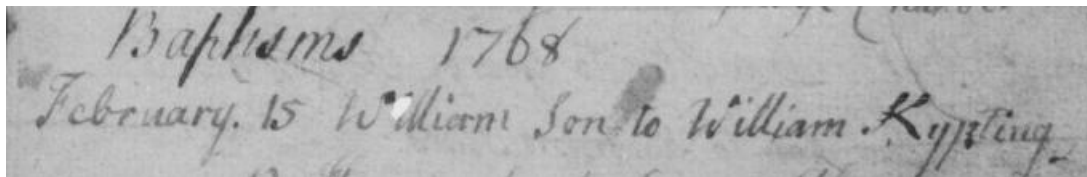 Baptisms 1768
February. 15 William Son to William Kypling